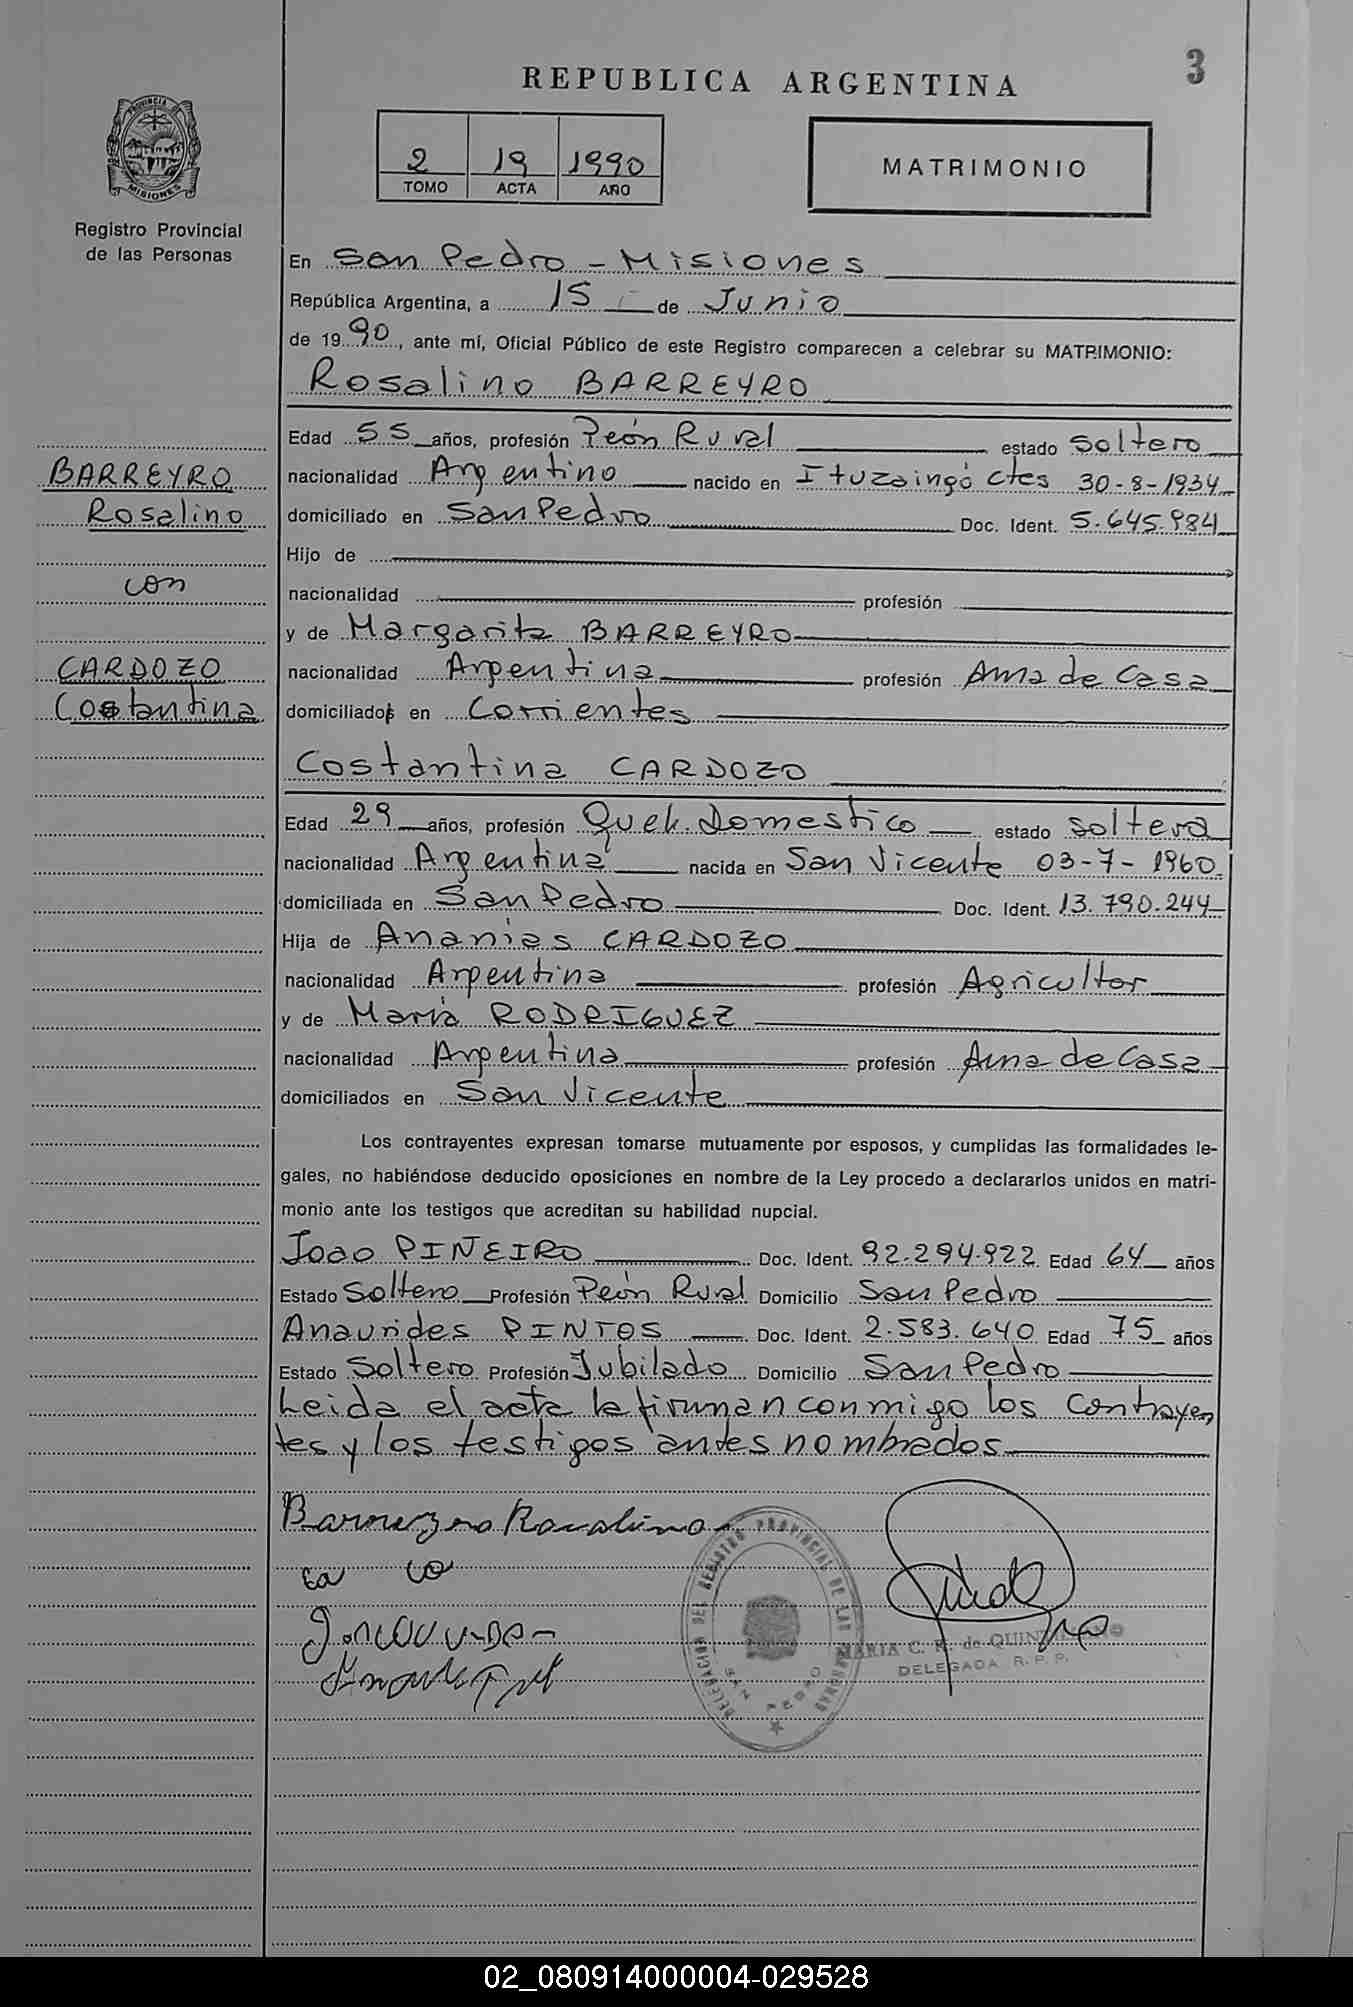 3
REPUBLICA ARGENTINA
PROVINCIA DE
MISIONES
2 19 1990
TOMO ACTA AÑO
MATRIMONIO
Registro Provincial
de las Personas
En San Pedro - Misiones
República Argentina, a 15 de Junio
de 1990, ante mí, Oficial Público de este Registro comparecen a celebrar su MATRIMONIO:
Rosalino BARREYRO
Edad 55 años, profesión Peón Rural estado soltero
BARREYRO
nacionalidad Argentino nacido en Ituzaingó Ctes 30-8-1934
Rosalino
domiciliado en San Pedro Doc. Ident. 5.645.984
Hijo de
con
nacionalidad profesión
y de Margarita BARREYRO
CARDOZO
nacionalidad Argentina profesión Ama de Casa
Costantina
domiciliados en Corrientes
Costantina CARDOZO
Edad 29 años, profesión Queh. Domestico estado soltera
nacionalidad Argentina nacida en San Vicente 03-7-1960.
domiciliada en San Pedro Doc. Ident. 13.790.244
Hija de Ananias CARDOZO
nacionalidad Argentina profesión Agricultor
y de María RODRIGUEZ
nacionalidad Argentina profesión Ama de Casa
domiciliados en San Vicente
Los contrayentes expresan tomarse mutuamente por esposos, y cumplidas las formalidades le-
gales, no habiéndose deducido oposiciones en nombre de la Ley procedo a declararlos unidos en matri-
monio ante los testigos que acreditan su habilidad nupcial.
Joao PINEIRO Doc. Ident. 92.294.922 Edad 64 años
Estado Soltero Profesión Peón Rural Domicilio San Pedro
Anaurides PINTOS Doc. Ident. 2.583.640 Edad 75 años
Estado Soltero Profesión Jubilado Domicilio San Pedro
Leida el acta la firman conmigo los contrayen
tes y los testigos antes nombrados
Barreyro Rosalino
ca co
DELEGACION DEL REGISTRO PROVINCIAL DE LAS PERSONAS
SAN PEDRO
MARIA C. R. de
DELEGADA R. P. P.
02_080914000004-029528